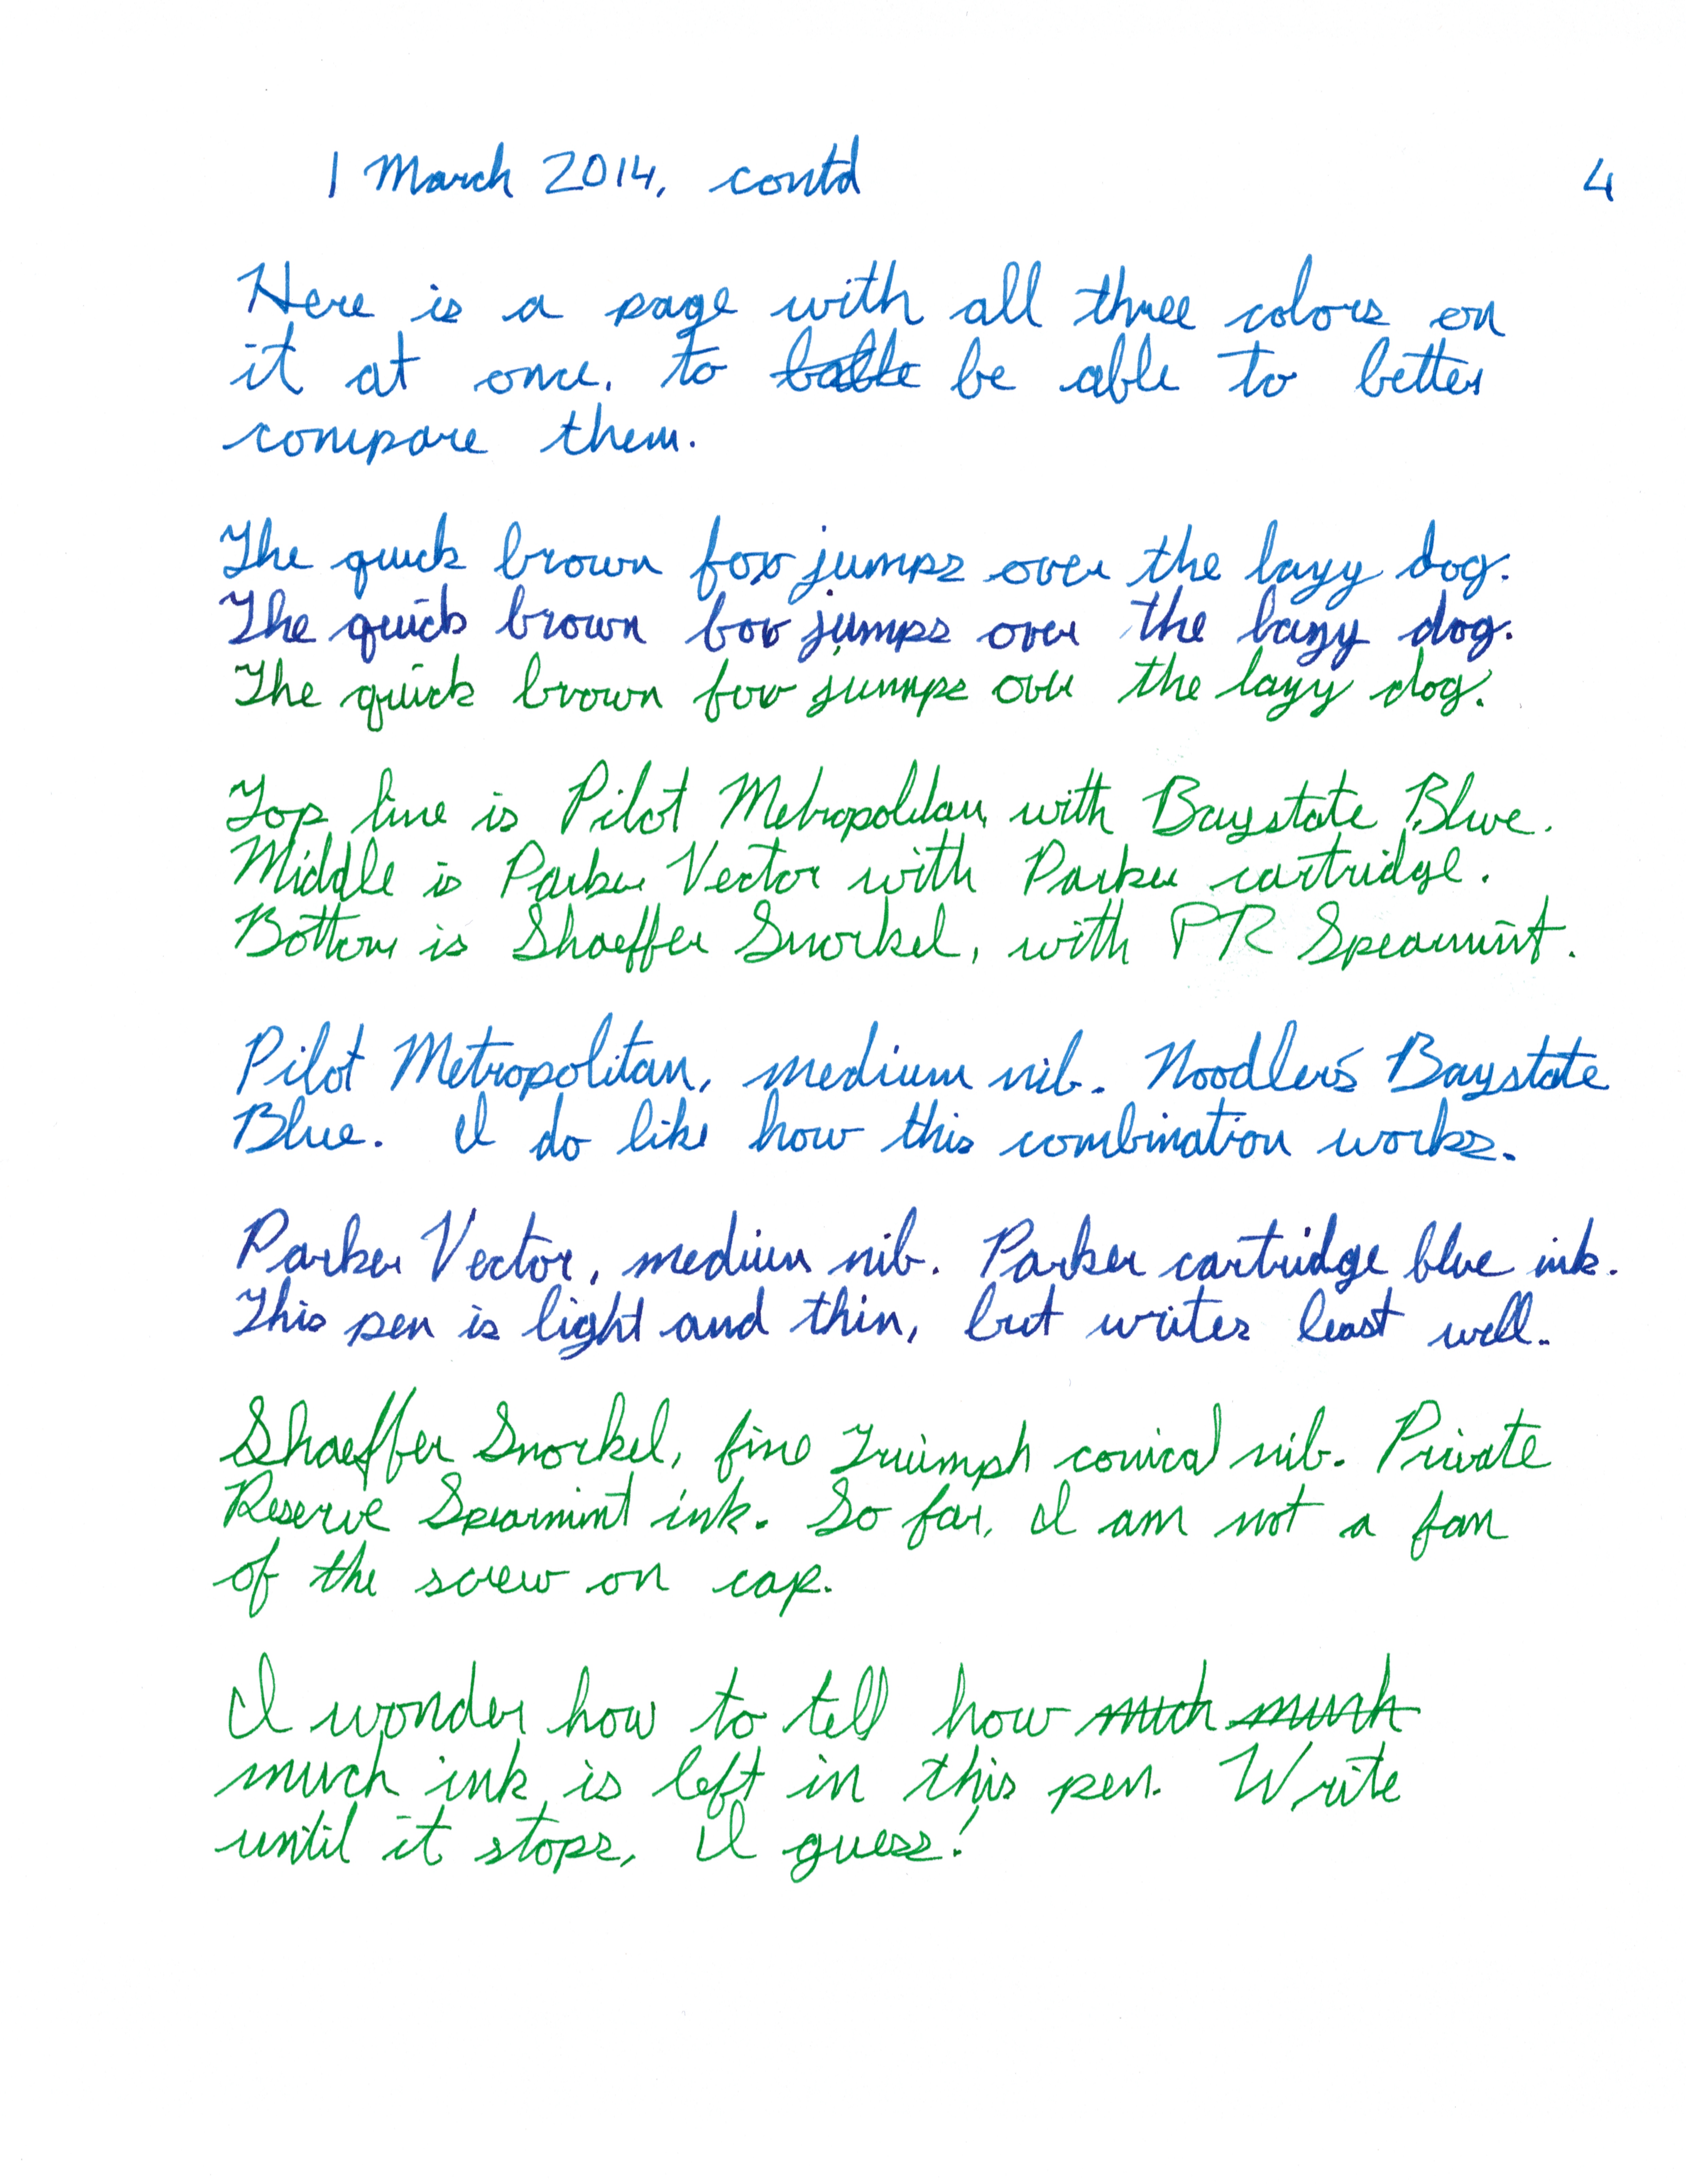 1 March 2014, contd 4
Here is a page with all three colors on
it at once, to be able to better
compare them.
The quick brown fox jumps over the lazy dog.
The quick brown fox jumps over the lazy dog.
The quick brown fox jumps over the lazy dog.
Top line is Pilot Metropolitan, with Baystate Blue.
Middle is Parker Vector with Parker cartridge.
Bottom is Shaeffer Snorkel, with PR Spearmint.
Pilot Metropolitan, medium nib. Noodler's Baystate
Blue. I do like how this combination works.
Parker Vector, medium nib. Parker cartridge blue ink.
This pen is light and thin, but writes least well.
Shaeffer Snorkel, fine Triumph conical nib. Private
Reserve Spearmint ink. So far, I am not a fan
of the screw on cap.
I wonder how to tell how much much
much ink is left in this pen. Write
until it stops, I guess!